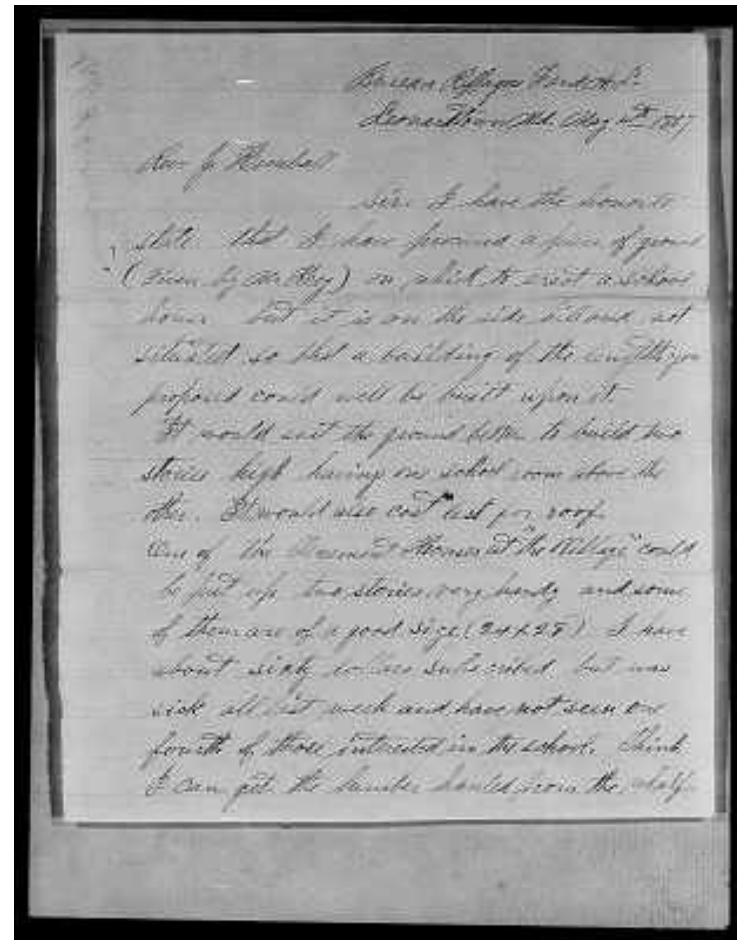 Bureau Refugees Freedmen &c
Leonardtown Md. Aug 4th 1867
Rev J Kimball
Sir. I have the honor to
state that I have procured a piece of ground
(Given by Mr Key) on which to erect a school
house but it is on the side hill and not
situated so that a building of the length you
proposed could well be built upon it.
It would suit the ground better to build two
stories high having one school room above the
other. It would also cost less for roof.
One of the Houses at "the Village" could
be put up two stories very handy and some
of them are of a good size (24 x 28) I have
about sixty dollars subscribed but was
sick all last week and have not seen one
fourth of those interested in the school. Think
I can get the lumber hauled from the wharf